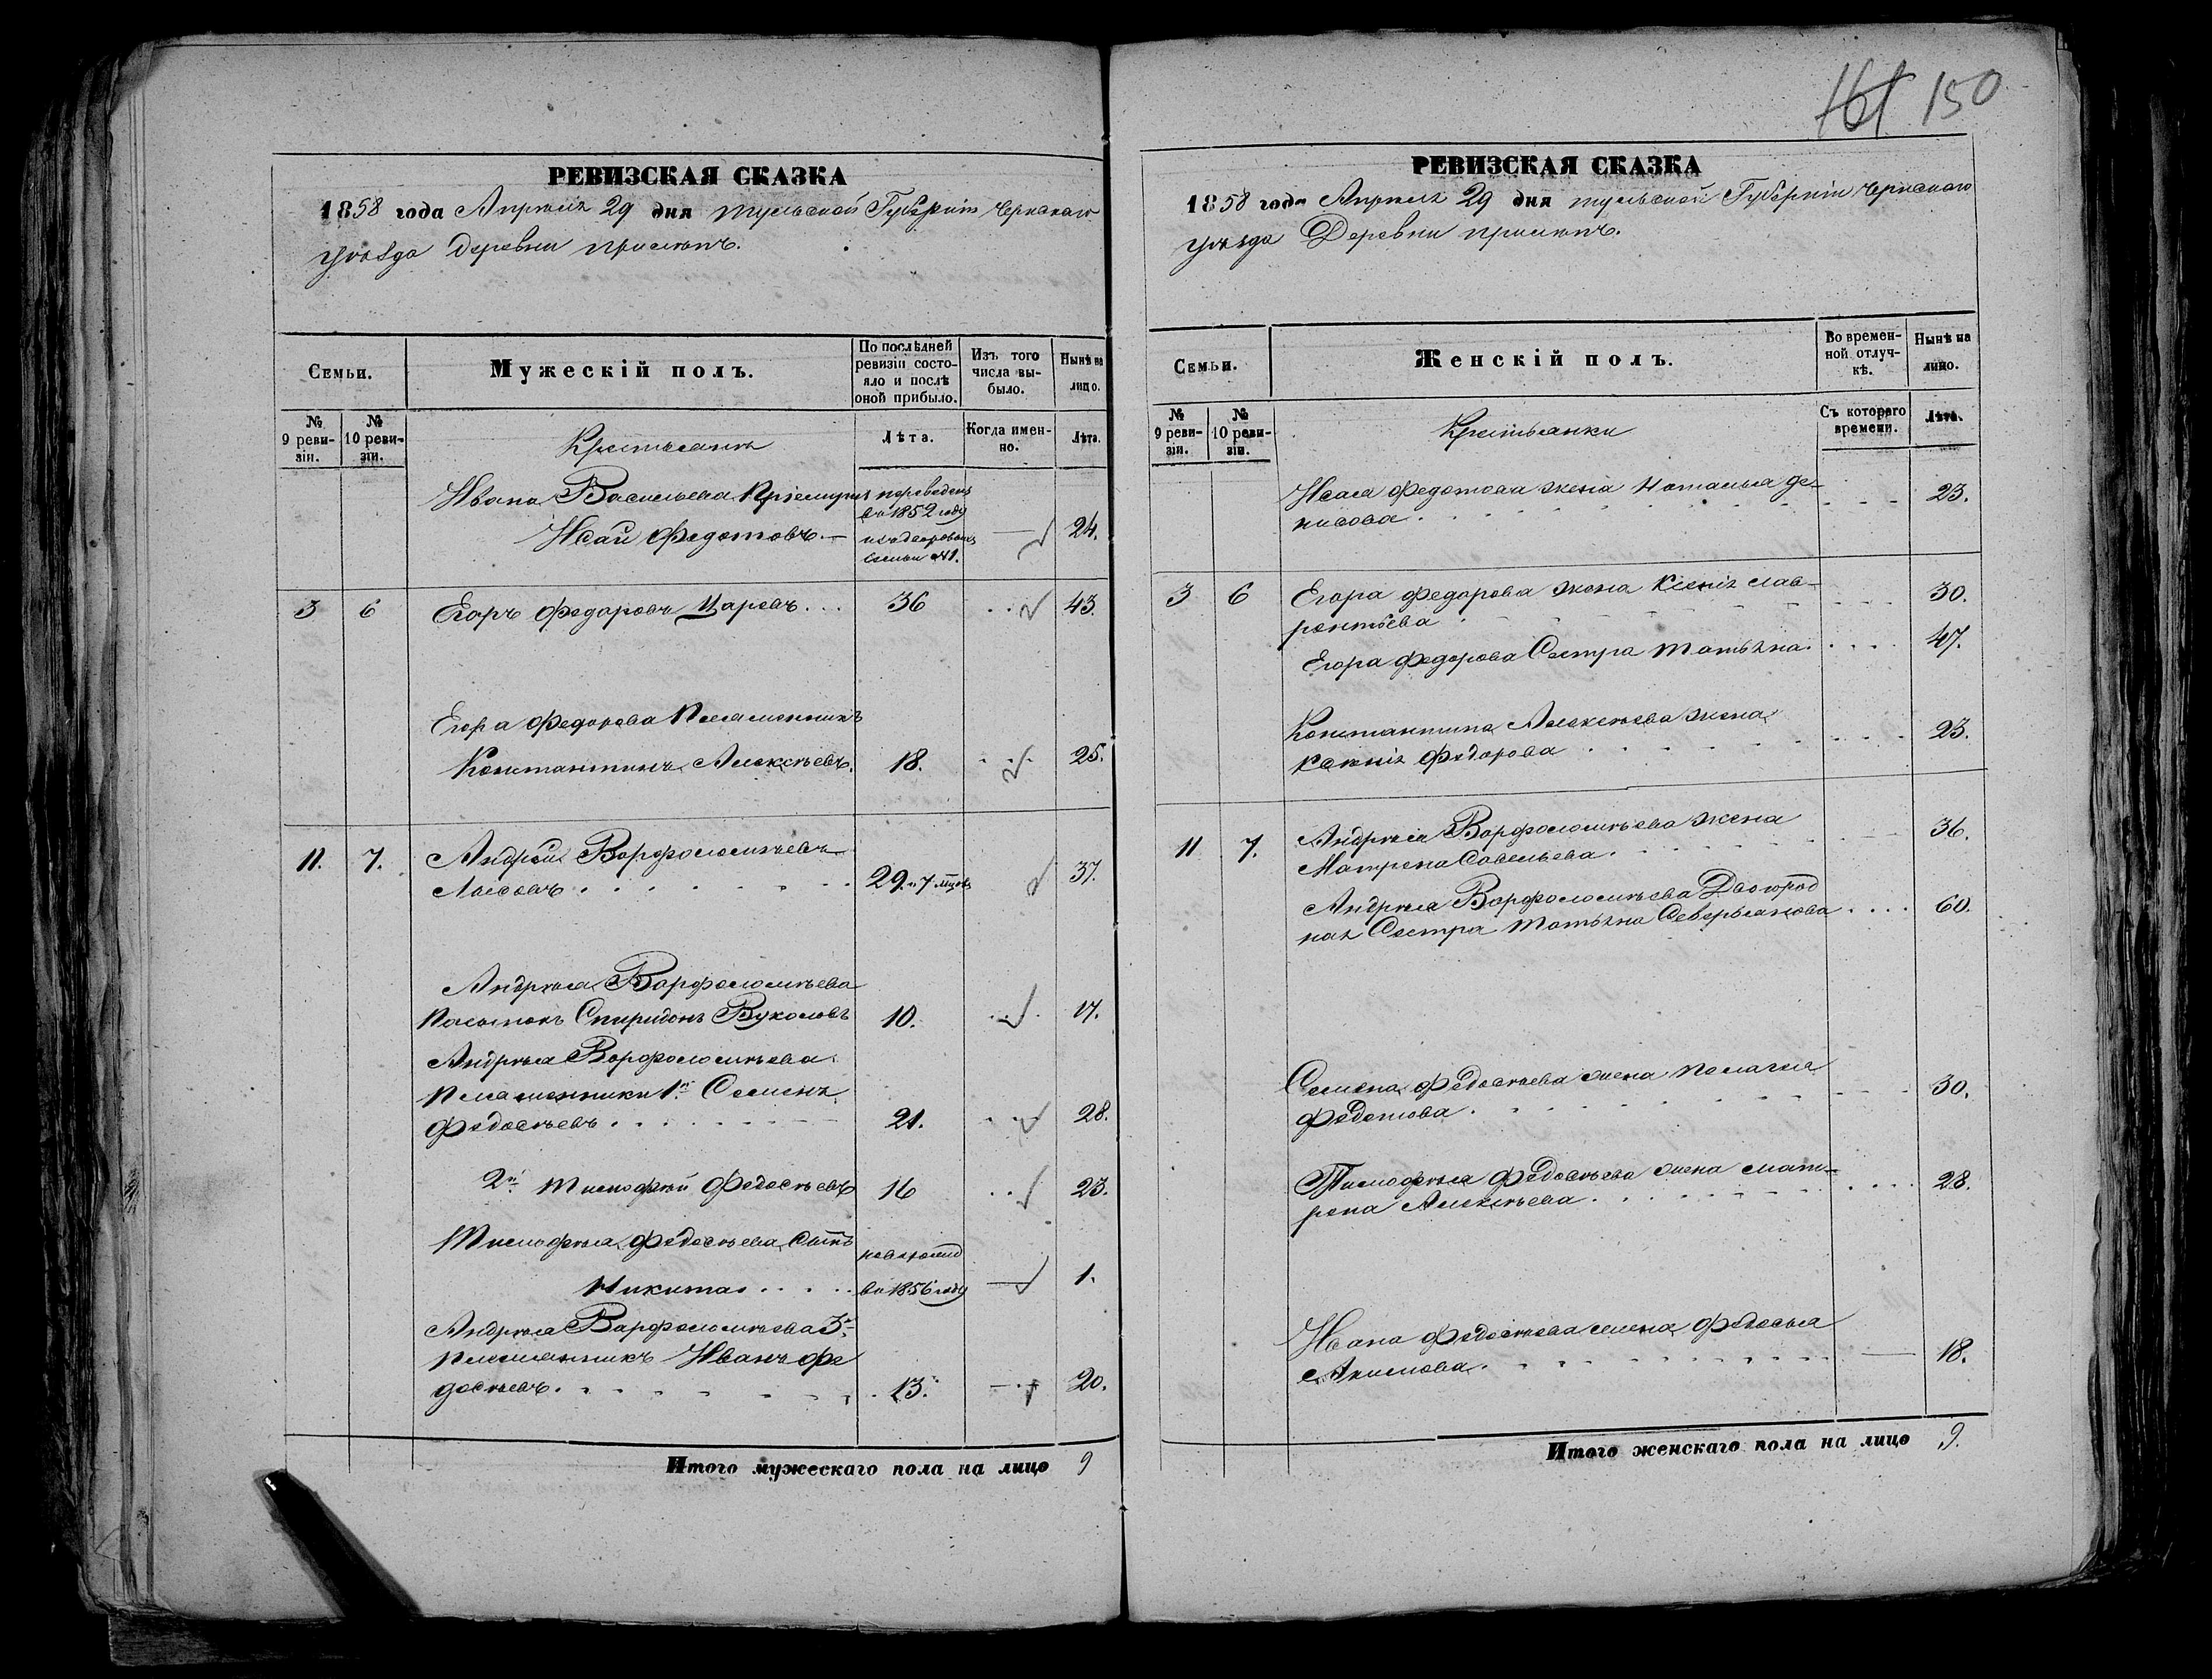 РЕВИЗСКАЯ СКАЗКА
1858 года Апрѣля 29 дня Тульской Губерніи Чернскаго
уѣзда Деревни
Семьи.
Мужескій полъ.
По послѣдней ревизіи состояло и послѣ оной прибыло.
Изъ того числа выбыло.
Нынѣ на лицо.
№ 9 ревизіи.
№ 10 ревизіи.
Крестьяне
Лѣта.
Когда именно.
Лѣта.
Ивана Васильева Пріемышъ переведенъ
въ 1852 году
Исай Федотовъ. 24.
семьи №1.
3 6 Егоръ Федоровъ Царевъ... 36 43.
Егора Федорова Племянникъ
Константинъ Алексѣевъ. 18. 25.
11. 7. Андрей Варфоломѣевъ
29. 7 мцовъ 37.
Андрѣя Варфоломѣева
Пасынокъ Спиридонъ Вуколовъ 10. 17.
Андрѣя Варфоломѣева
Племянники 1й Семенъ
Федосѣевъ. 21. 28.
2й Тимофей Федосѣевъ 16 23.
Тимофѣя Федосѣева Сынъ новорожд
Никита въ 1856 году 1.
Андрѣя Варфоломѣева 3й
племянникъ Иванъ Фе
досѣевъ. 13. 20.
Итого мужескаго пола на лицо 9
161 150
РЕВИЗСКАЯ СКАЗКА
1858 года Апрѣля 29 дня Тульской Губерніи Чернскаго
уѣзда Деревни
Семьи.
Женскій полъ.
Во временной отлучкѣ.
Нынѣ на лицо.
№ 9 ревизіи.
№ 10 ревизіи.
Крестьянки
Съ котораго времени.
Лѣта.
Исая Федотова жена Наталья Де-
нисова. 23.
3 6 Егора Федорова жена Ксенія Лав-
рентьева 30.
Егора Федорова Сестра Татьяна. 47.
Константина Алексѣева жена
Ксенія Федорова 23.
11 7. Андрѣя Варфоломѣева жена
Матрена Савельева. 36.
Андрѣя Варфоломѣева Двоюрод
ная Сестра Татьяна Северьянова 60.
Семена Федосѣева жена Пелагея
Федотова. 30.
Тимофѣя Федосѣева жена Мат-
рена Алексѣева. 28.
Ивана Федосѣева жена Федосья
Акимова. 18.
Итого женскаго пола на лицо 9.